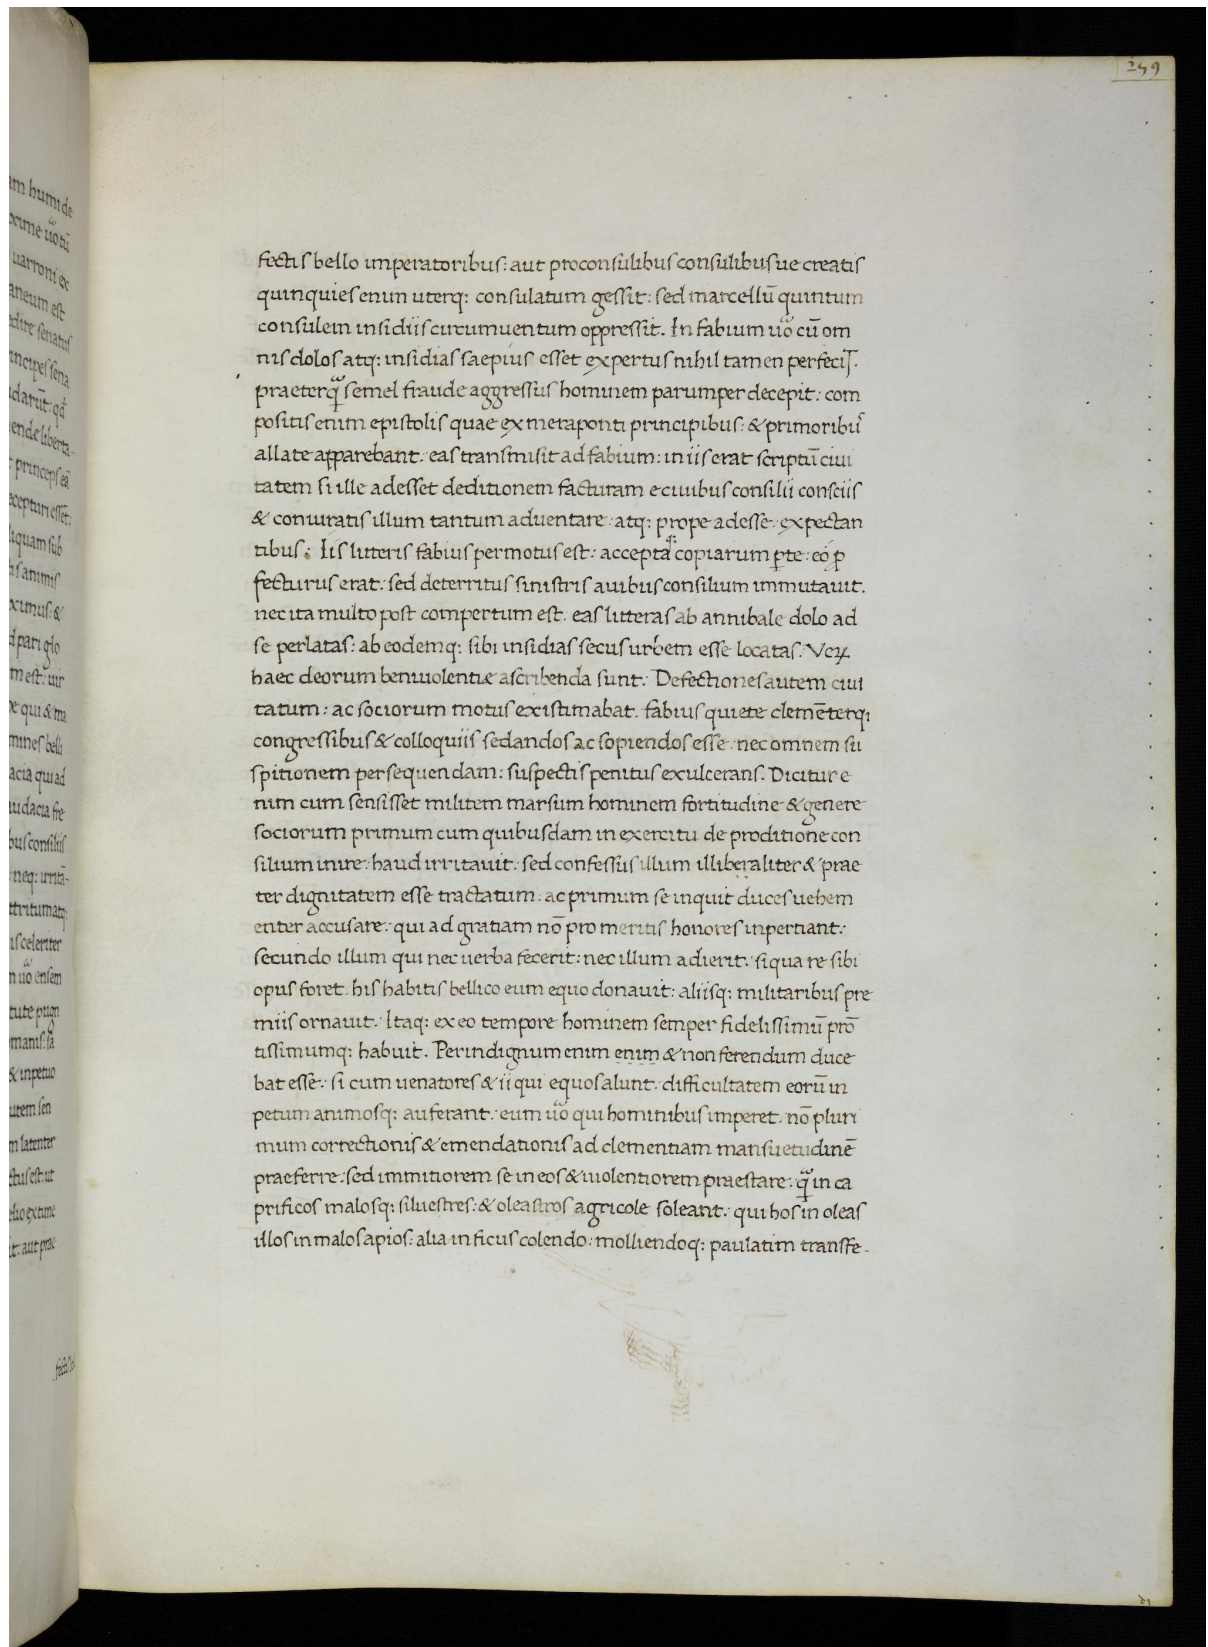 259
fectis bello imperatoribus: aut proconsulibus consulibusue creatis
quinquies enim uterq; consulatum gessit: sed marcellū quintum
consulem insidiis circumuentum oppressit. In fabium uͦo cū om
nis dolos atq; insidias saepius esset expertus nihil tamen perfecit.
praeterq̄ semel fraude aggressus hominem parumper decepit: com
positis enim epistolis quae ex metaponti principibus: & primoribuˢ
allate apparebant. eas transmisit ad fabium: in iis erat scriptū ciui
tatem si ille adesset deditionem facturam e ciuibus consilii consciis
& coniuratis illum tantum aduentare. atq; prope adesse. expectan
tibus; Iis litteris fabius permotus est: acceptaq; copiarum ꝑte: eo ꝓ
fecturus erat: sed deterritus sinistris auibus consilium immutauit.
nec ita multo post compertum est. eas litteras ab annibale dolo ad
se perlatas: ab eodemq; sibi insidias secus urbem esse locatas. Veꝝ
haec deorum beniuolentiæ ascribenda sunt. Defectiones autem ciui
tatum: ac sociorum motus existimabat. fabius quiete clemēterq;
congressibus & colloquiis sedandos ac sopiendos esse. nec omnem su
spitionem persequendam: suspectis penitus exulcerans. Dicitur e
nim cum sensisset militem marsum hominem fortitudine & genere
sociorum primum cum quibusdam in exercitu de proditione con
silium inire: haud irritauit. sed confessus illum illiberaliter & prae
ter dignitatem esse tractatum. ac primum se inquit duces uehem
enter accusare: qui ad gratiam nō pro meritis honores inpertiant:
secundo illum qui nec uerba fecerit: nec illum adierit. siqua re sibi
opus foret. his habitis bellico eum equo donauit: aliisq; militaribus pre
miis ornauit. Itaq; ex eo tempore hominem semper fidelissimū prō
tissimumq; habuit. Perindignum enim enim & non ferendum duce
bat esse: si cum uenatores & ii qui equos alunt: difficultatem eorū in
petum animosq; auferant: eum uͦo qui hominibus imperet. nō pluri
mum correctionis & emendationis ad clementiam mansuetudinē
praeferre: sed immitiorem se in eos & uiolentiorem praestare: q̄ in ca
prificos malosq; siluestres: & oleastros agricole soleant: qui hos in oleas
illos in malos apios: alia in ficus colendo: molliendoq; paulatim transfe